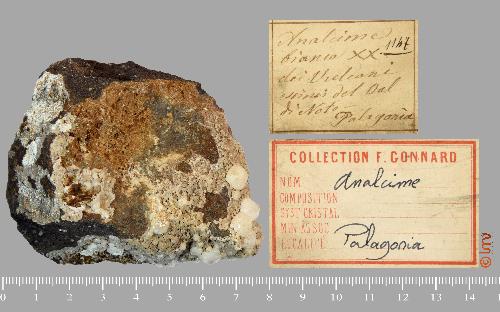 Analcime
1147
bianca XX
dei Vulcani
del Val
di Noto
Palagonia
COLLECTION F. GONNARD
NOM Analcime
COMPOSITION
SYST. CRISTAL
MIN. ASSOC
LOCALITÉ Palagonia
0 1 2 3 4 5 6 7 8 9 10 11 12 13 14